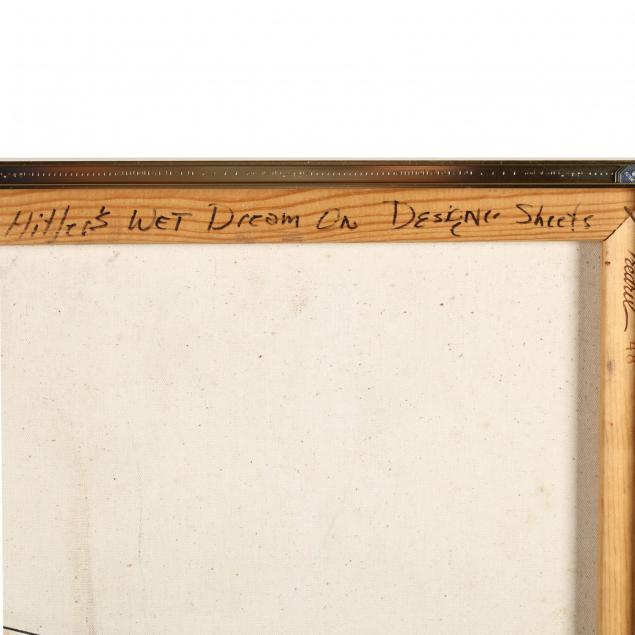 Hitler's WET Dream On Designer Sheets
48